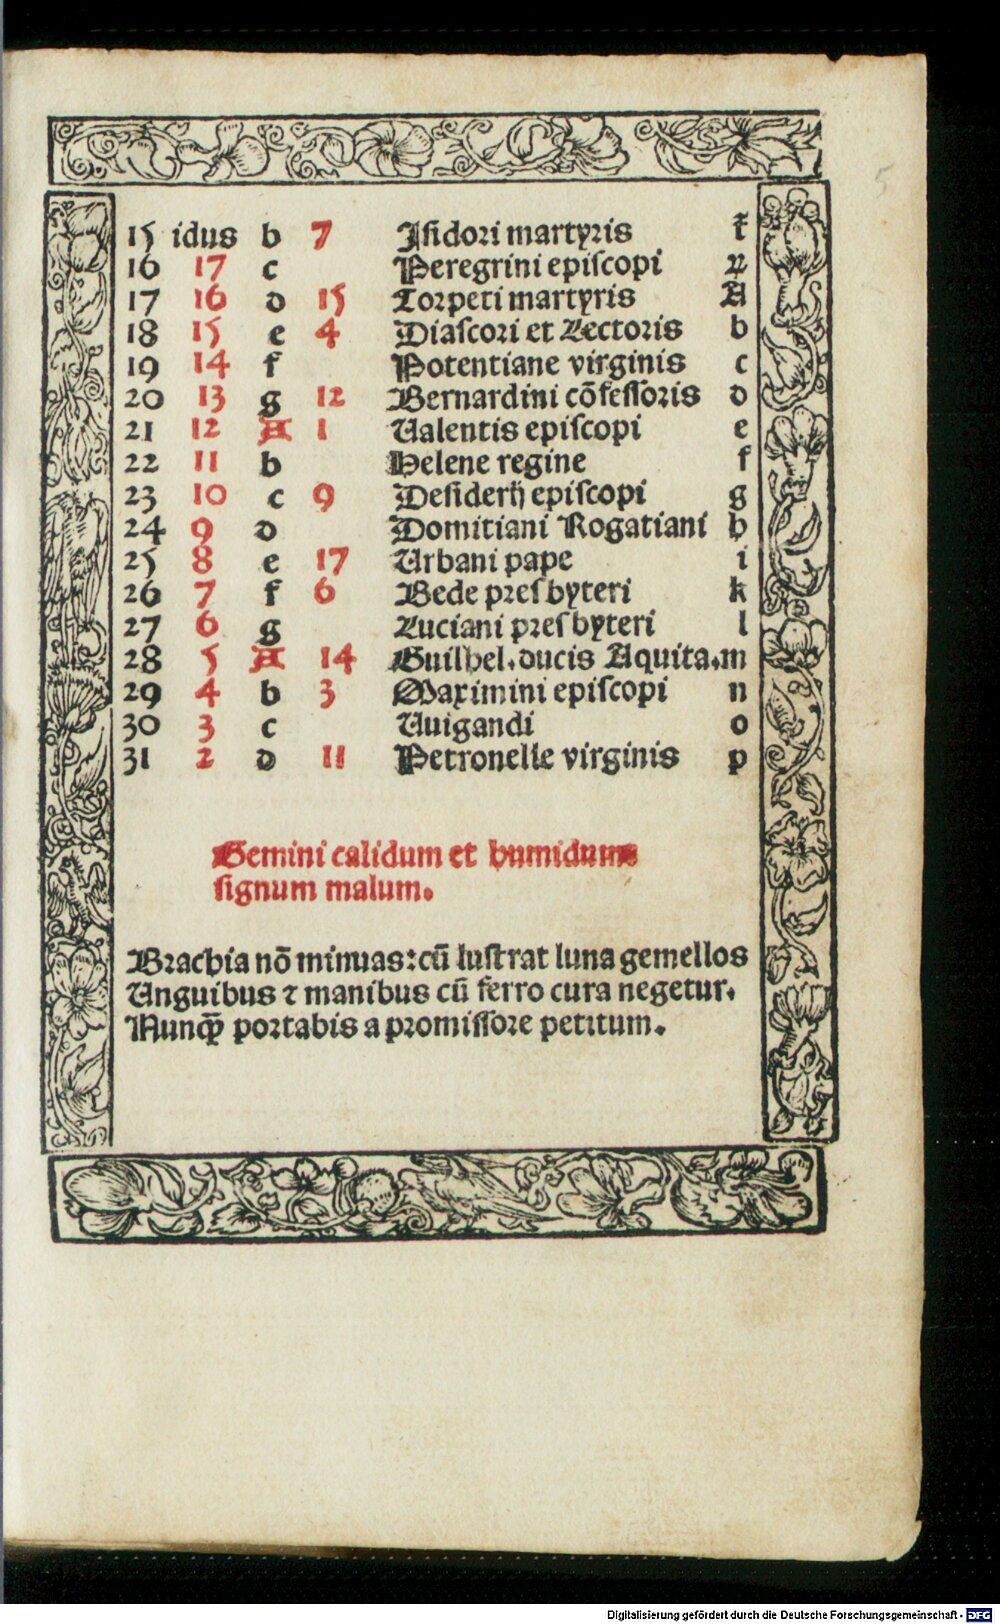 5
15 idus b 7 Isidori martyris ꝉ
16 17 c Peregrini episcopi ꝝ
17 16 d 15 Torpeti martyris A
18 15 e 4 Diascori et Lectoris b
19 14 f Potentiane virginis c
20 13 g 12 Bernardini cōfessoris d
21 12 A 1 Ualentis episcopi e
22 11 b Helene regine f
23 10 c 9 Desiderij episcopi g
24 9 d Domitiani Rogatiani h
25 8 e 17 Urbani pape i
26 7 f 6 Bede presbyteri k
27 6 g Luciani presbyteri l
28 5 A 14 Guilhel. ducis Aquita. m
29 4 b 3 Maximini episcopi n
30 3 c Uuigandi o
31 2 d 11 Petronelle virginis p
Gemini calidum et humidum
signum malum.
Brachia nō minuas: cū lustrat luna gemellos
Unguibus ⁊ manibus cū ferro cura negetur.
Nunqꝫ portabis a promissore petitum.
Digitalisierung gefördert durch die Deutsche Forschungsgemeinschaft - DFG